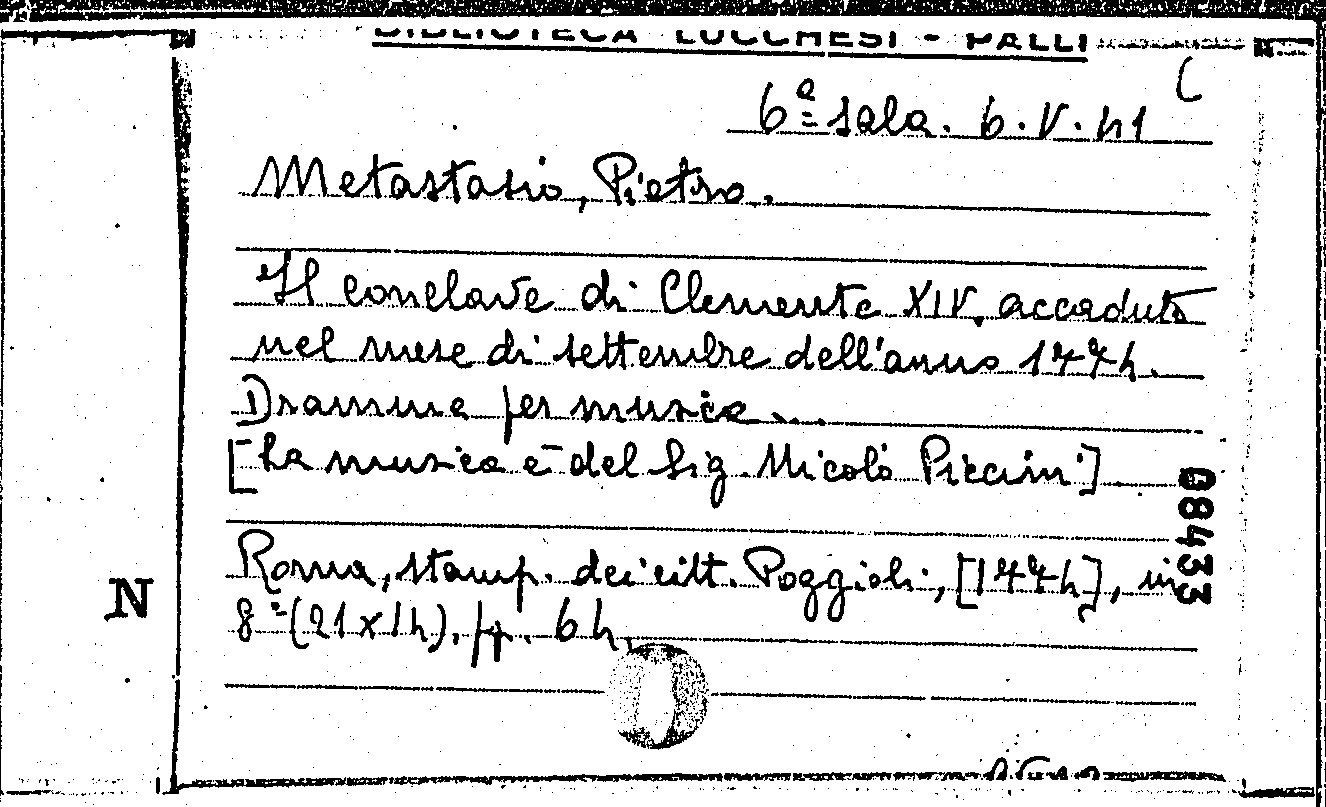 BIBLIOTECA LUCCHESI - PALLI
C
6ª sala. 6.V.41
Metastasio, Pietro.
Il conclave di Clemente XIV, accaduto
nel mese di settembre dell'anno 1774.
Dramma per musica...
[La musica è del Sig. Nicolò Piccini]
08433
Roma, stamp. dei citt. Poggioli, [1774], in
8º (21x14), pp. 64.
N